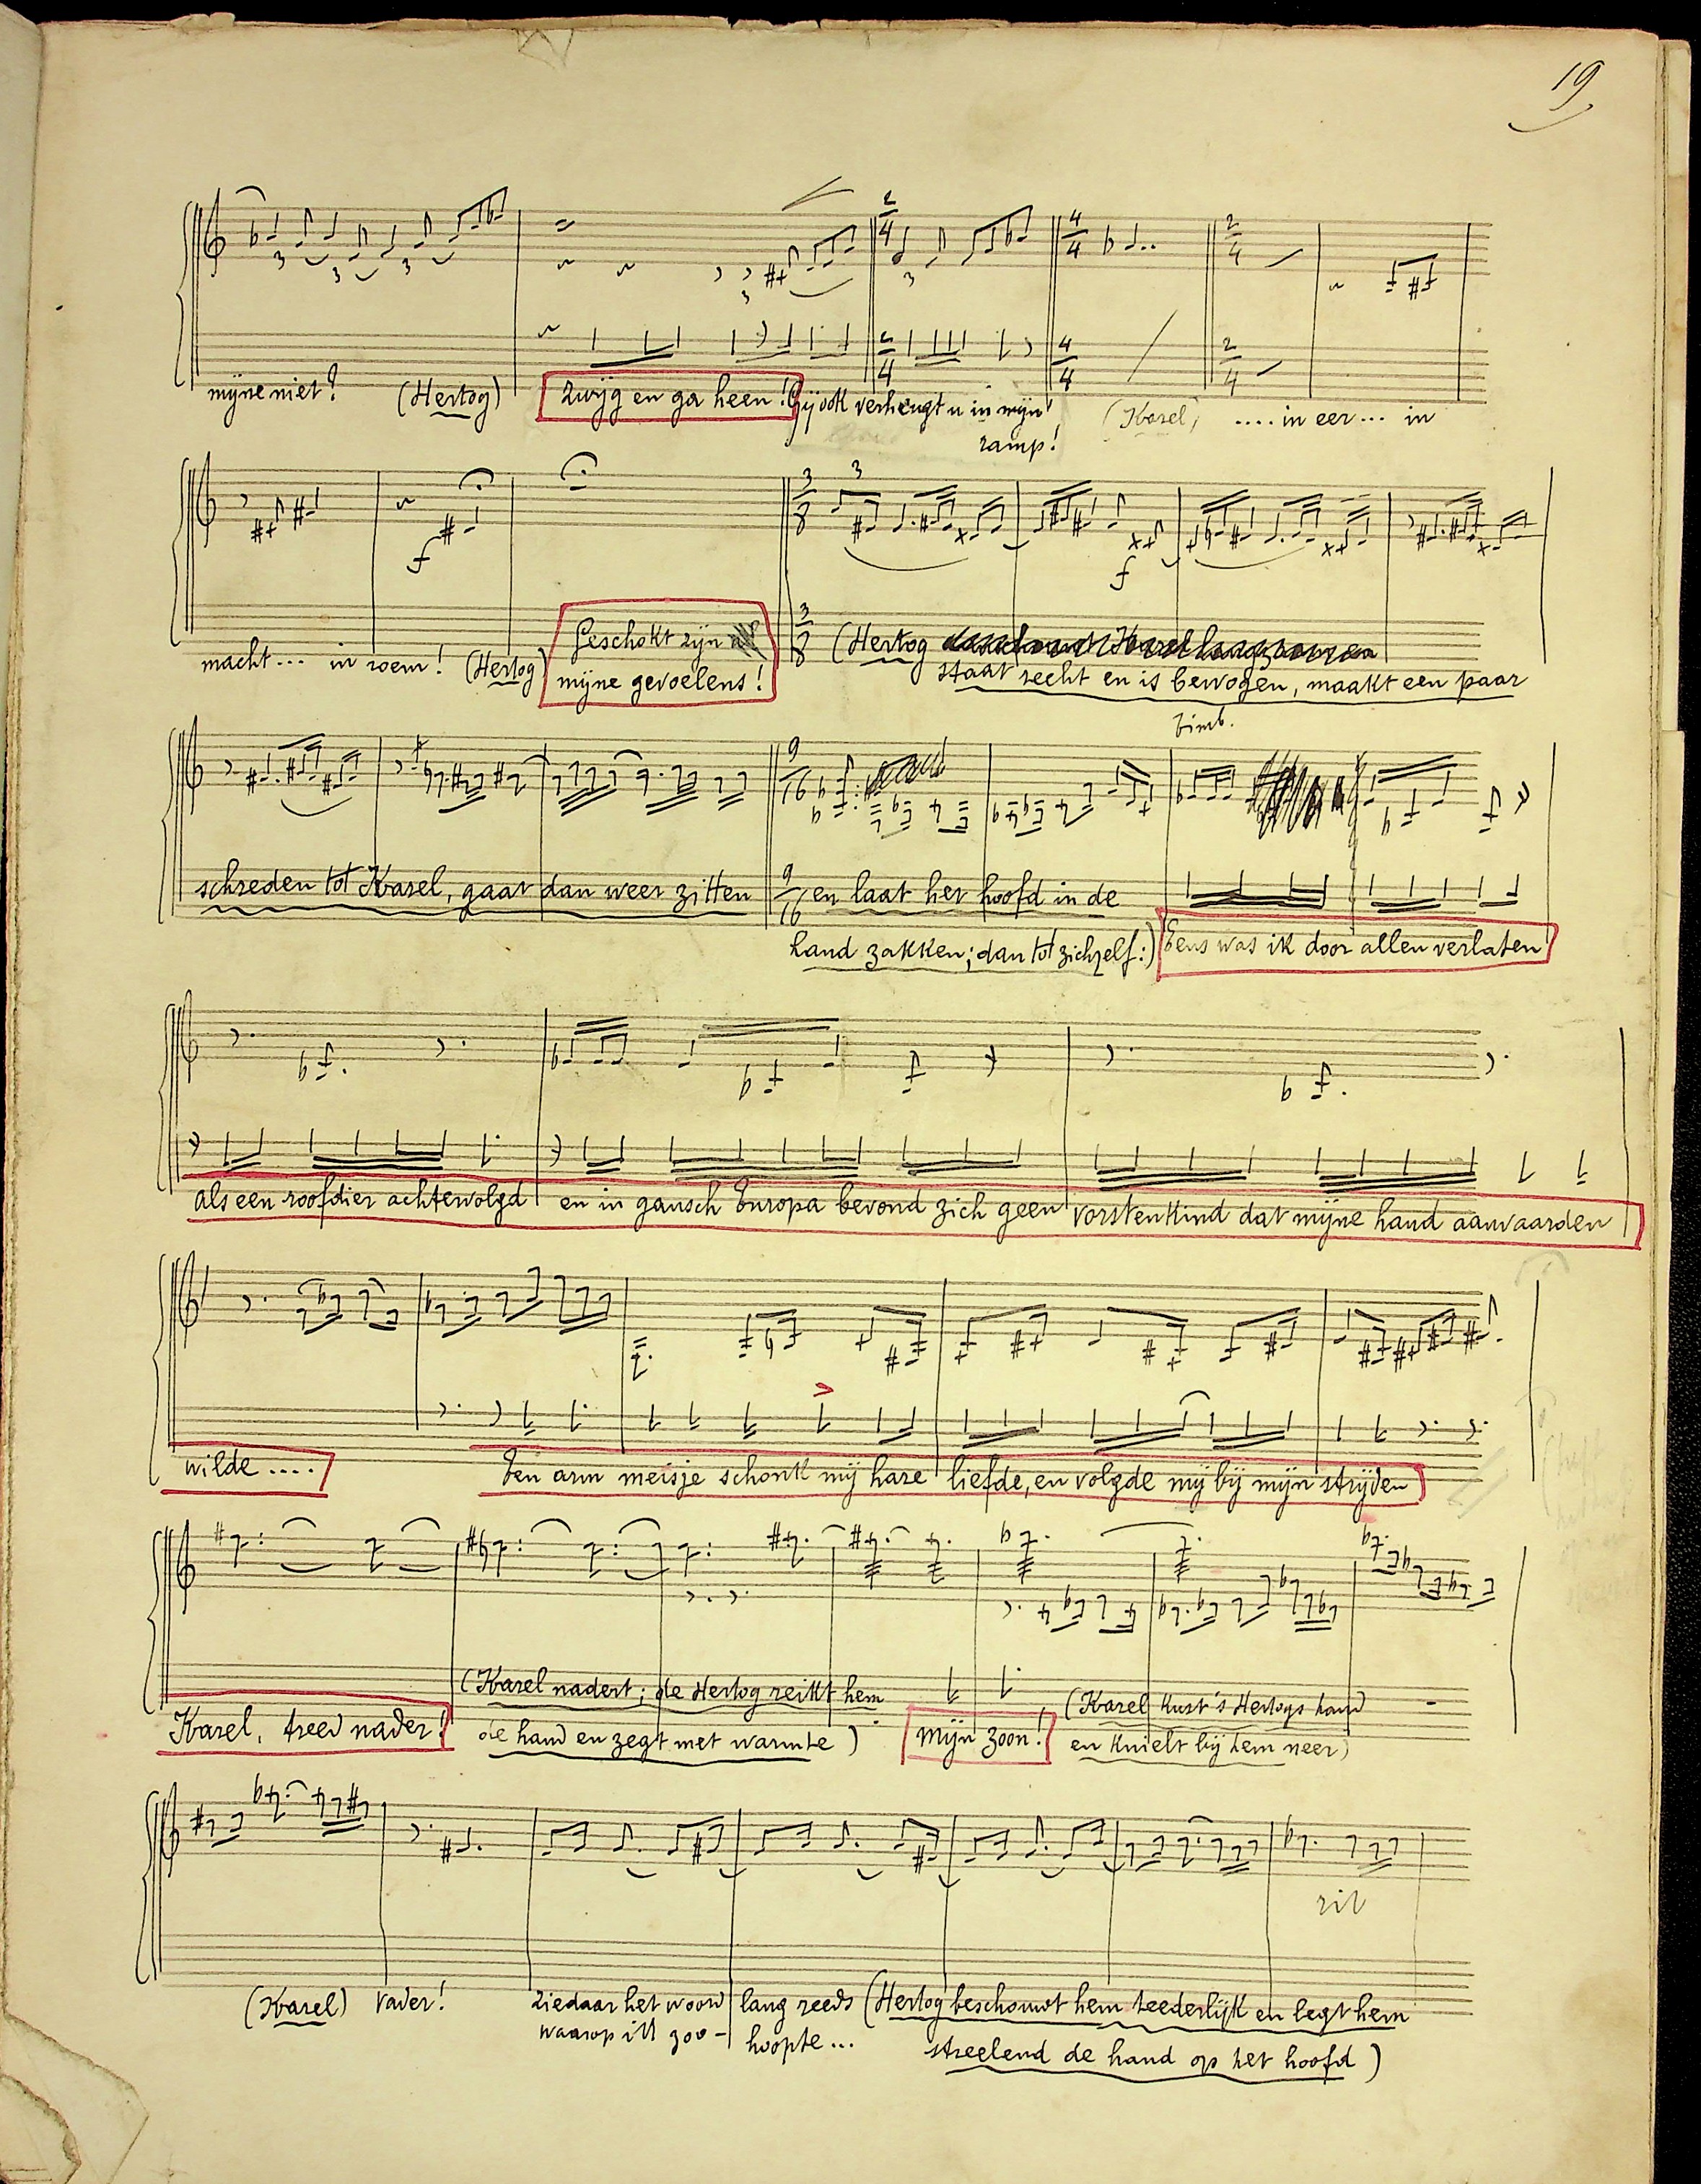 19
mijne niet! (Hertog) Zwijg en ga heen! Gij ook verheugt u in mijn
ramp! (Karel) .... in eer ... in
macht ... in roem! (Hertog) Geschokt zijn
mijne gevoelens! (Hertog
staat recht en is bewogen, maakt een paar
timb.
schreden tot Karel, gaat dan weer zitten en laat het hoofd in de
hand zakken; dan tot zichzelf:) Eens was ik door allen verlaten
als een roofdier achtervolgd en in gansch Europa bevond zich geen vorstenkind dat mijne hand aanvaarden
wilde .... Een arm meisje schonk mij hare liefde, en volgde mij bij mijn strijden
(Karel nadert; de Hertog reikt hem
Karel, treed nader! de hand en zegt met warmte) Mijn zoon! (Karel kust 's Hertogs hand
en knielt bij hem neer)
rit
(Karel) Vader! Ziedaar het woord lang reeds (Hertog beschouwt hem teederlijk en legt hem
waarop ik zoo- hoopte ... streelend de hand op het hoofd)